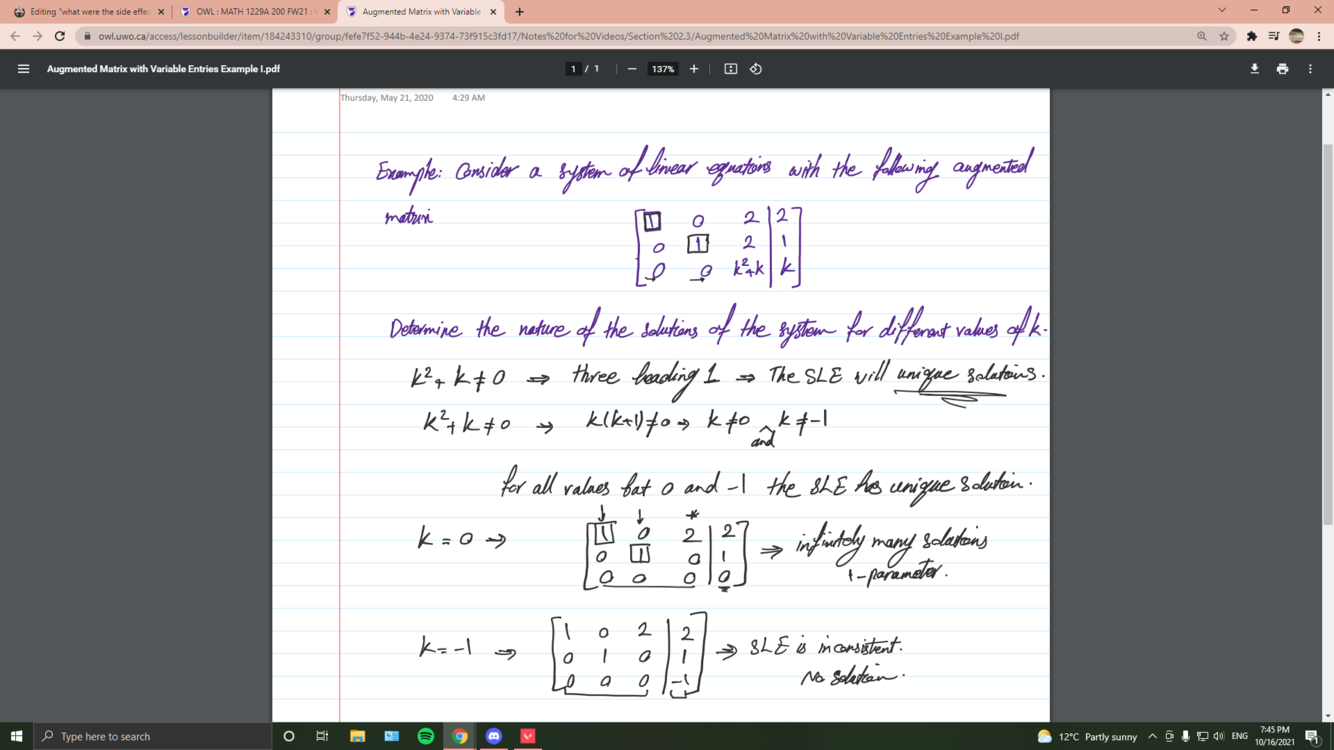 Editing "what were the side effec
OWL : MATH 1229A 200 FW21 : V
Augmented Matrix with Variable
owl.uwo.ca/access/lessonbuilder/item/184243310/group/fefe7f52-944b-4e24-9374-73f915c3fd17/Notes%20for%20Videos/Section%202.3/Augmented%20Matrix%20with%20Variable%20Entries%20Example%20I.pdf
Augmented Matrix with Variable Entries Example I.pdf
1 / 1
137%
Thursday, May 21, 2020 4:29 AM
Example: Consider a system of linear equations with the following augmented
matrix
[1 0 2 | 2]
[0 1 2 | 1]
[0 0 k²+k | k]
Determine the nature of the solutions of the system for different values of k.
k²+k≠0 ⇒ three leading 1 ⇒ The SLE will unique solutions.
k²+k≠0 ⇒ k(k+1)≠0 ⇒ k≠0 and k≠-1
for all values but 0 and -1 the SLE has unique solution.
k=0 ⇒
[1 0 2 | 2]
[0 1 0 | 1]
[0 0 0 | 0]
⇒ infinitely many solutions
1-parameter.
k=-1 ⇒
[1 0 2 | 2]
[0 1 0 | 1]
[0 0 0 | -1]
⇒ SLE is inconsistent.
No solution.
Type here to search
12°C Partly sunny
ENG
7:45 PM
10/16/2021
1